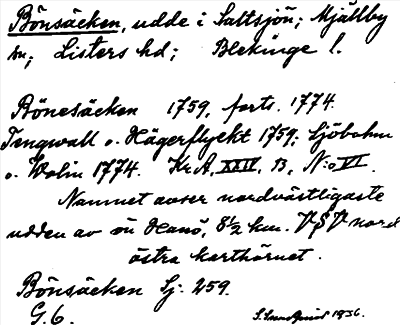 Bönsäcken, udde i Saltsjön; Mjällby
sn; Listers hd; Blekinge l.
Bönesäcken 1759, forts. 1774.
Tengwall o. Hägerflyckt 1759; Sjöbohm
o. Wolin 1774. Kr.A. XXIV, 13, N:o VI.
Namnet avser nordvästligaste
udden av ön Hanö, 8½ km. VSV nord
östra karthörnet.
Bönsäcken Sj. 259.
G.6. 1936.